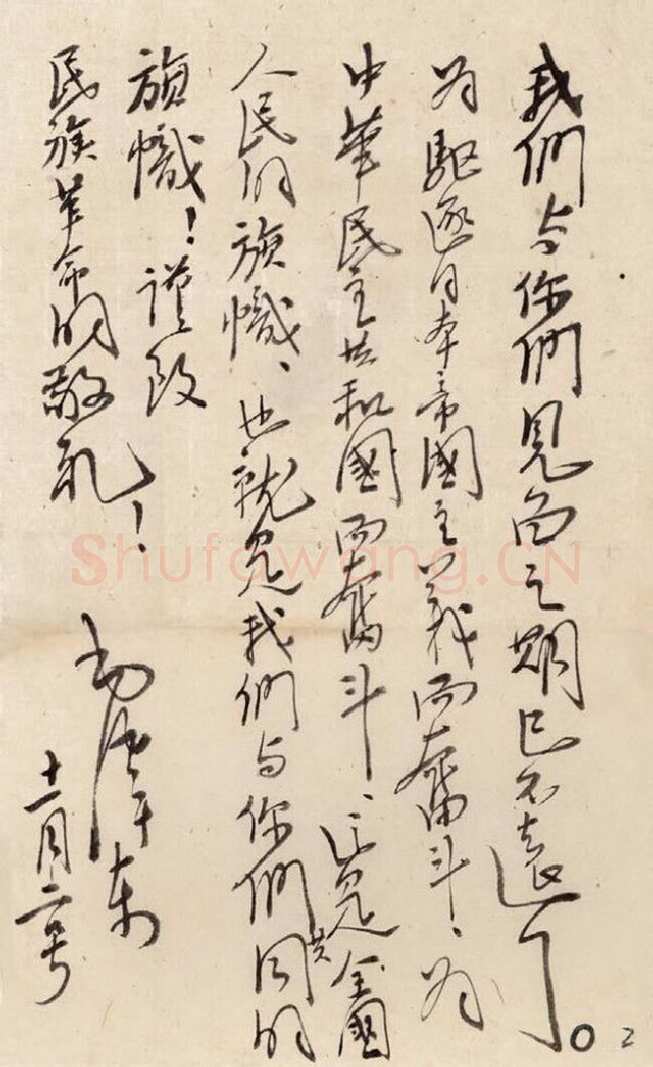 我們与你們見面之期已不遠了。
为驅逐日本帝國主義而奮斗、为
中華民主共和國而奮斗、这是全國
人民的旗幟、也就是我們与你們共同的
旗幟！謹致
民族革命的敬礼！
毛澤东
十一月二号
Shufawang.CN
2